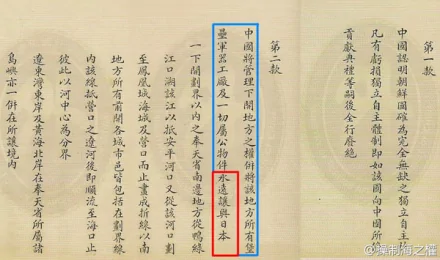 第一款
中國認明朝鮮國確為完全無缺之獨立自主故
凡有虧損獨立自主體制即如該國向中國所修
貢獻典禮等嗣後全行廢絕
第二款
中國將管理下開地方之權併將該地方所有堡
壘軍器工廠及一切屬公物件永遠讓與日本
一下開劃界以內之奉天省南邊地方從鴨綠
江口溯該江以抵安平河口又從該河口劃
至鳳凰城海城及營口而止畫成折線以南
地方所有前開各城市邑皆包括在劃界線
內該線抵營口之遼河後即順流至海口止
彼此以河中心為分界
遼東灣東岸及黃海北岸在奉天省所屬諸
島嶼亦一併在所讓境內